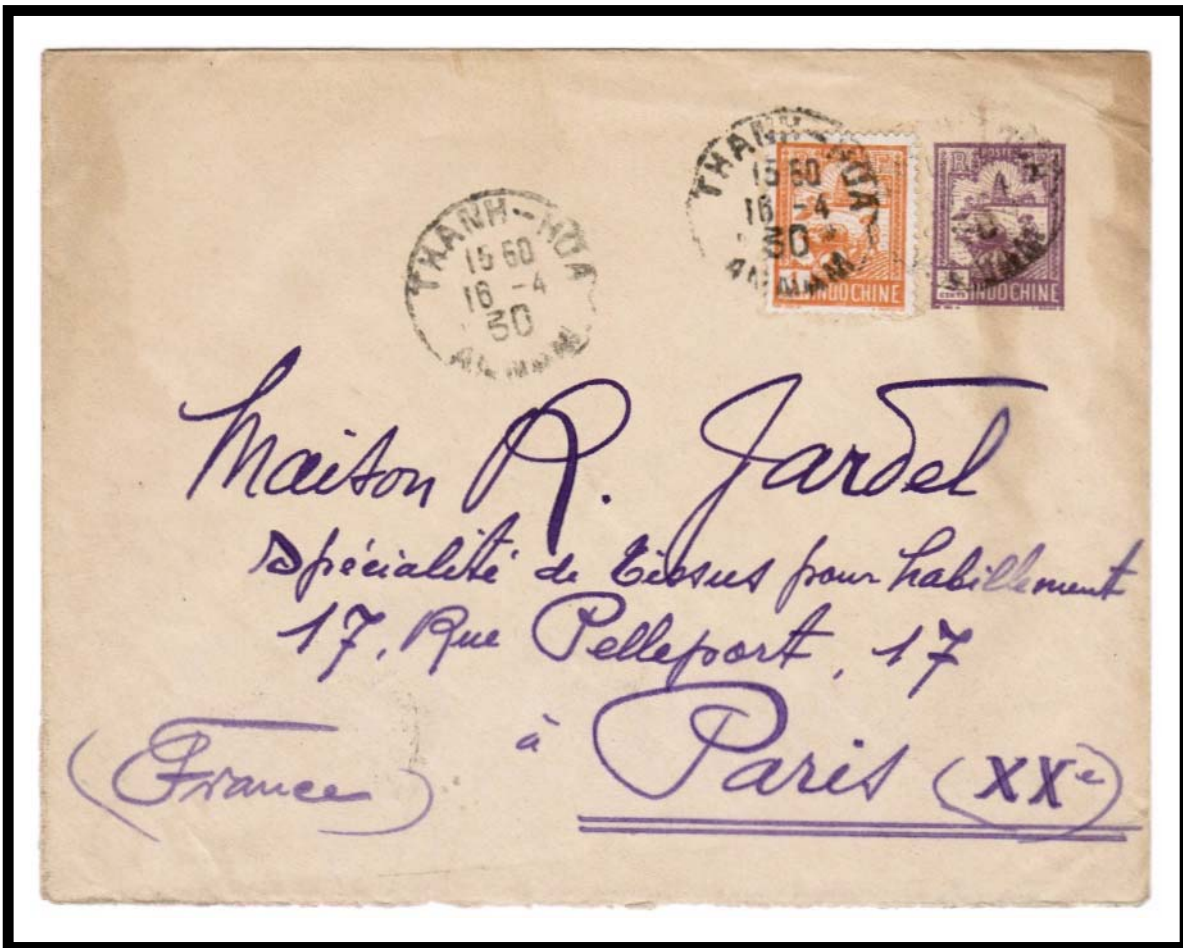 THANH-HOA
15 60
16 -4
30
ANNAM
THANH-HOA
15 60
16 -4
30
ANNAM
INDOCHINE
R POSTES F
CENTS INDOCHINE
Maison R. Jardel
Spécialité de Tissus pour habillement
17, Rue Pelleport, 17
à Paris (XXe)
(France)